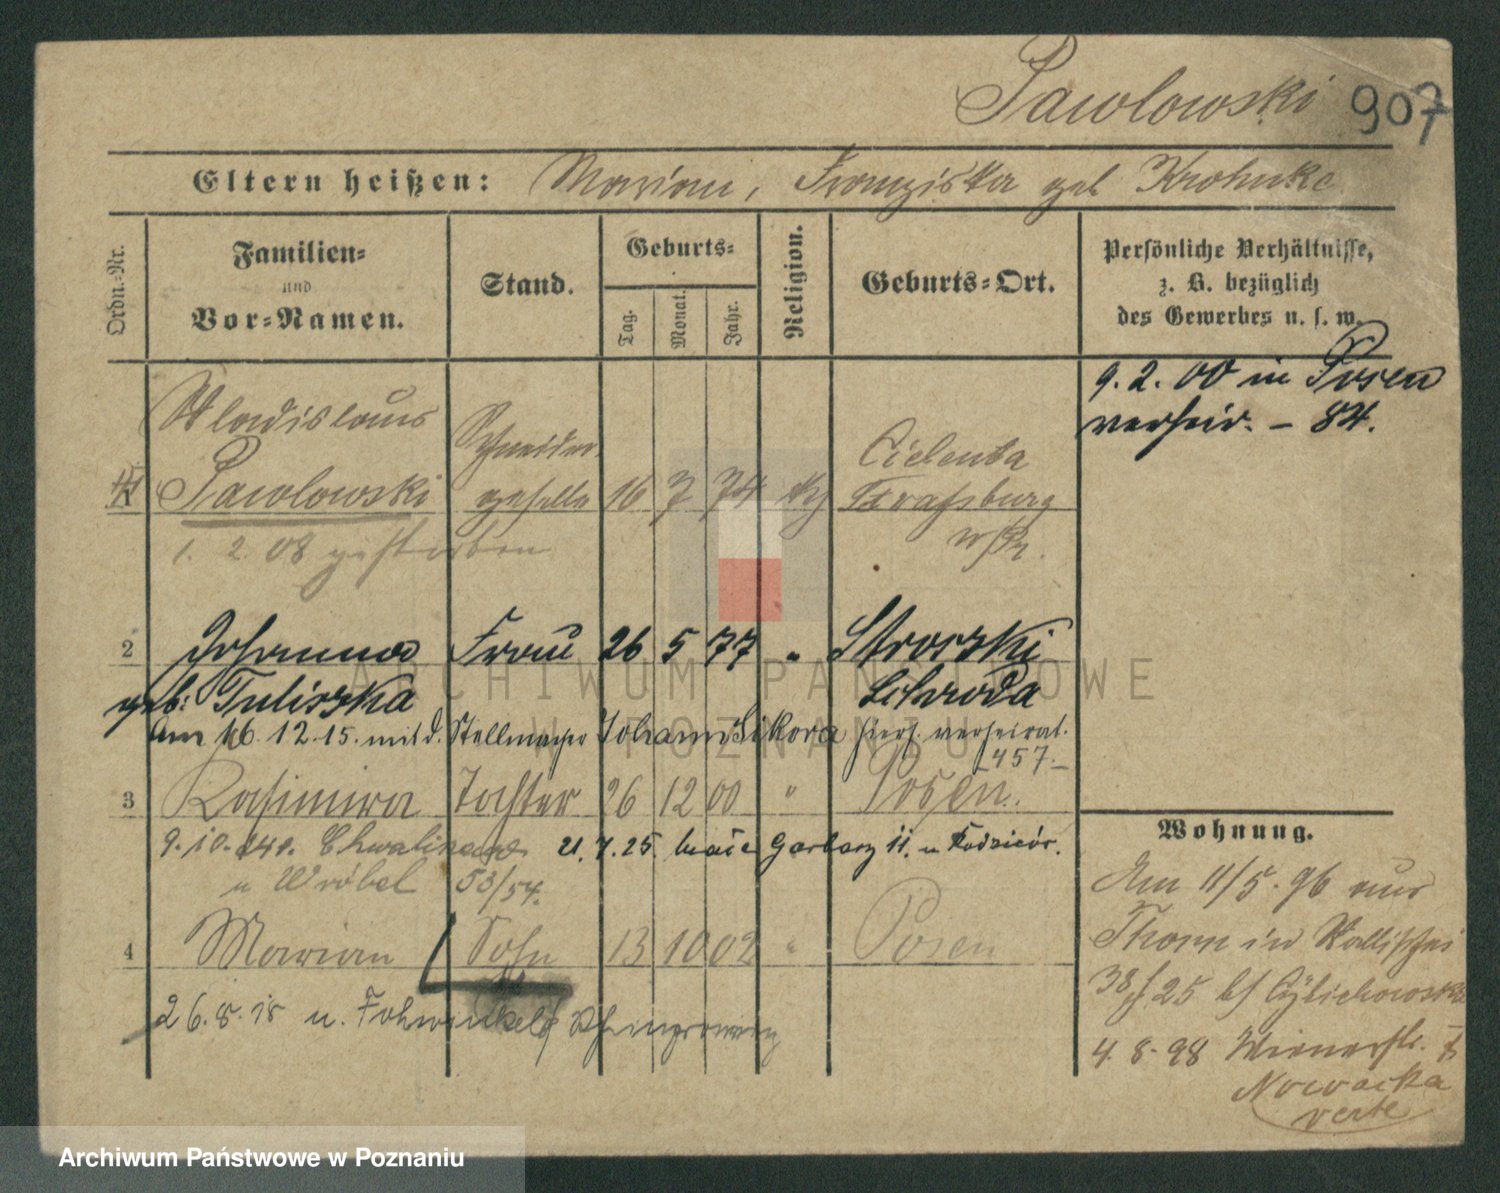 Pawlowski 907
Eltern heißen: Marian, Franziska geb Krohnke
Ordn.-Nr.
Familien-
und
Vor-Namen.
Stand.
Geburts-
Tag.
Monat.
Jahr.
Religion.
Geburts-Ort.
Persönliche Verhältnisse,
z. B. bezüglich
des Gewerbes u. s. w.
9.2.00 in Posen
verheir. - 84.
Wladislaus Schneider- Cielenta
1 Pawlowski geselle 16 7 74 kth Strasburg
1. 2. 08 gestorben W/Pr.
2 Johanna Frau 26 5 77 " Stroszki
geb: Tuliszka Schroda
Am 16.12.15. mit d. Stellmacher Johann Sikora hier verheirat.
457.-
3 Kasimira Tochter 26 12 00 " Posen.
9.10. Chwaliszewo 21.7.25. Garbary 11. u Rodziców.
u Wróbel 53/54.
4 Marian Sohn 13 10 02 " Posen
26.8.18 n. Fohwinkel Rheinprovinz
Wohnung.
Am 11/5.96 aus
Thorn in Wallischei
38 25 b/ Cylichowski
4.8.98 Wienerstr.
Nowacka
verte
ARCHIWUM PAŃSTWOWE
W POZNANIU
Archiwum Państwowe w Poznaniu